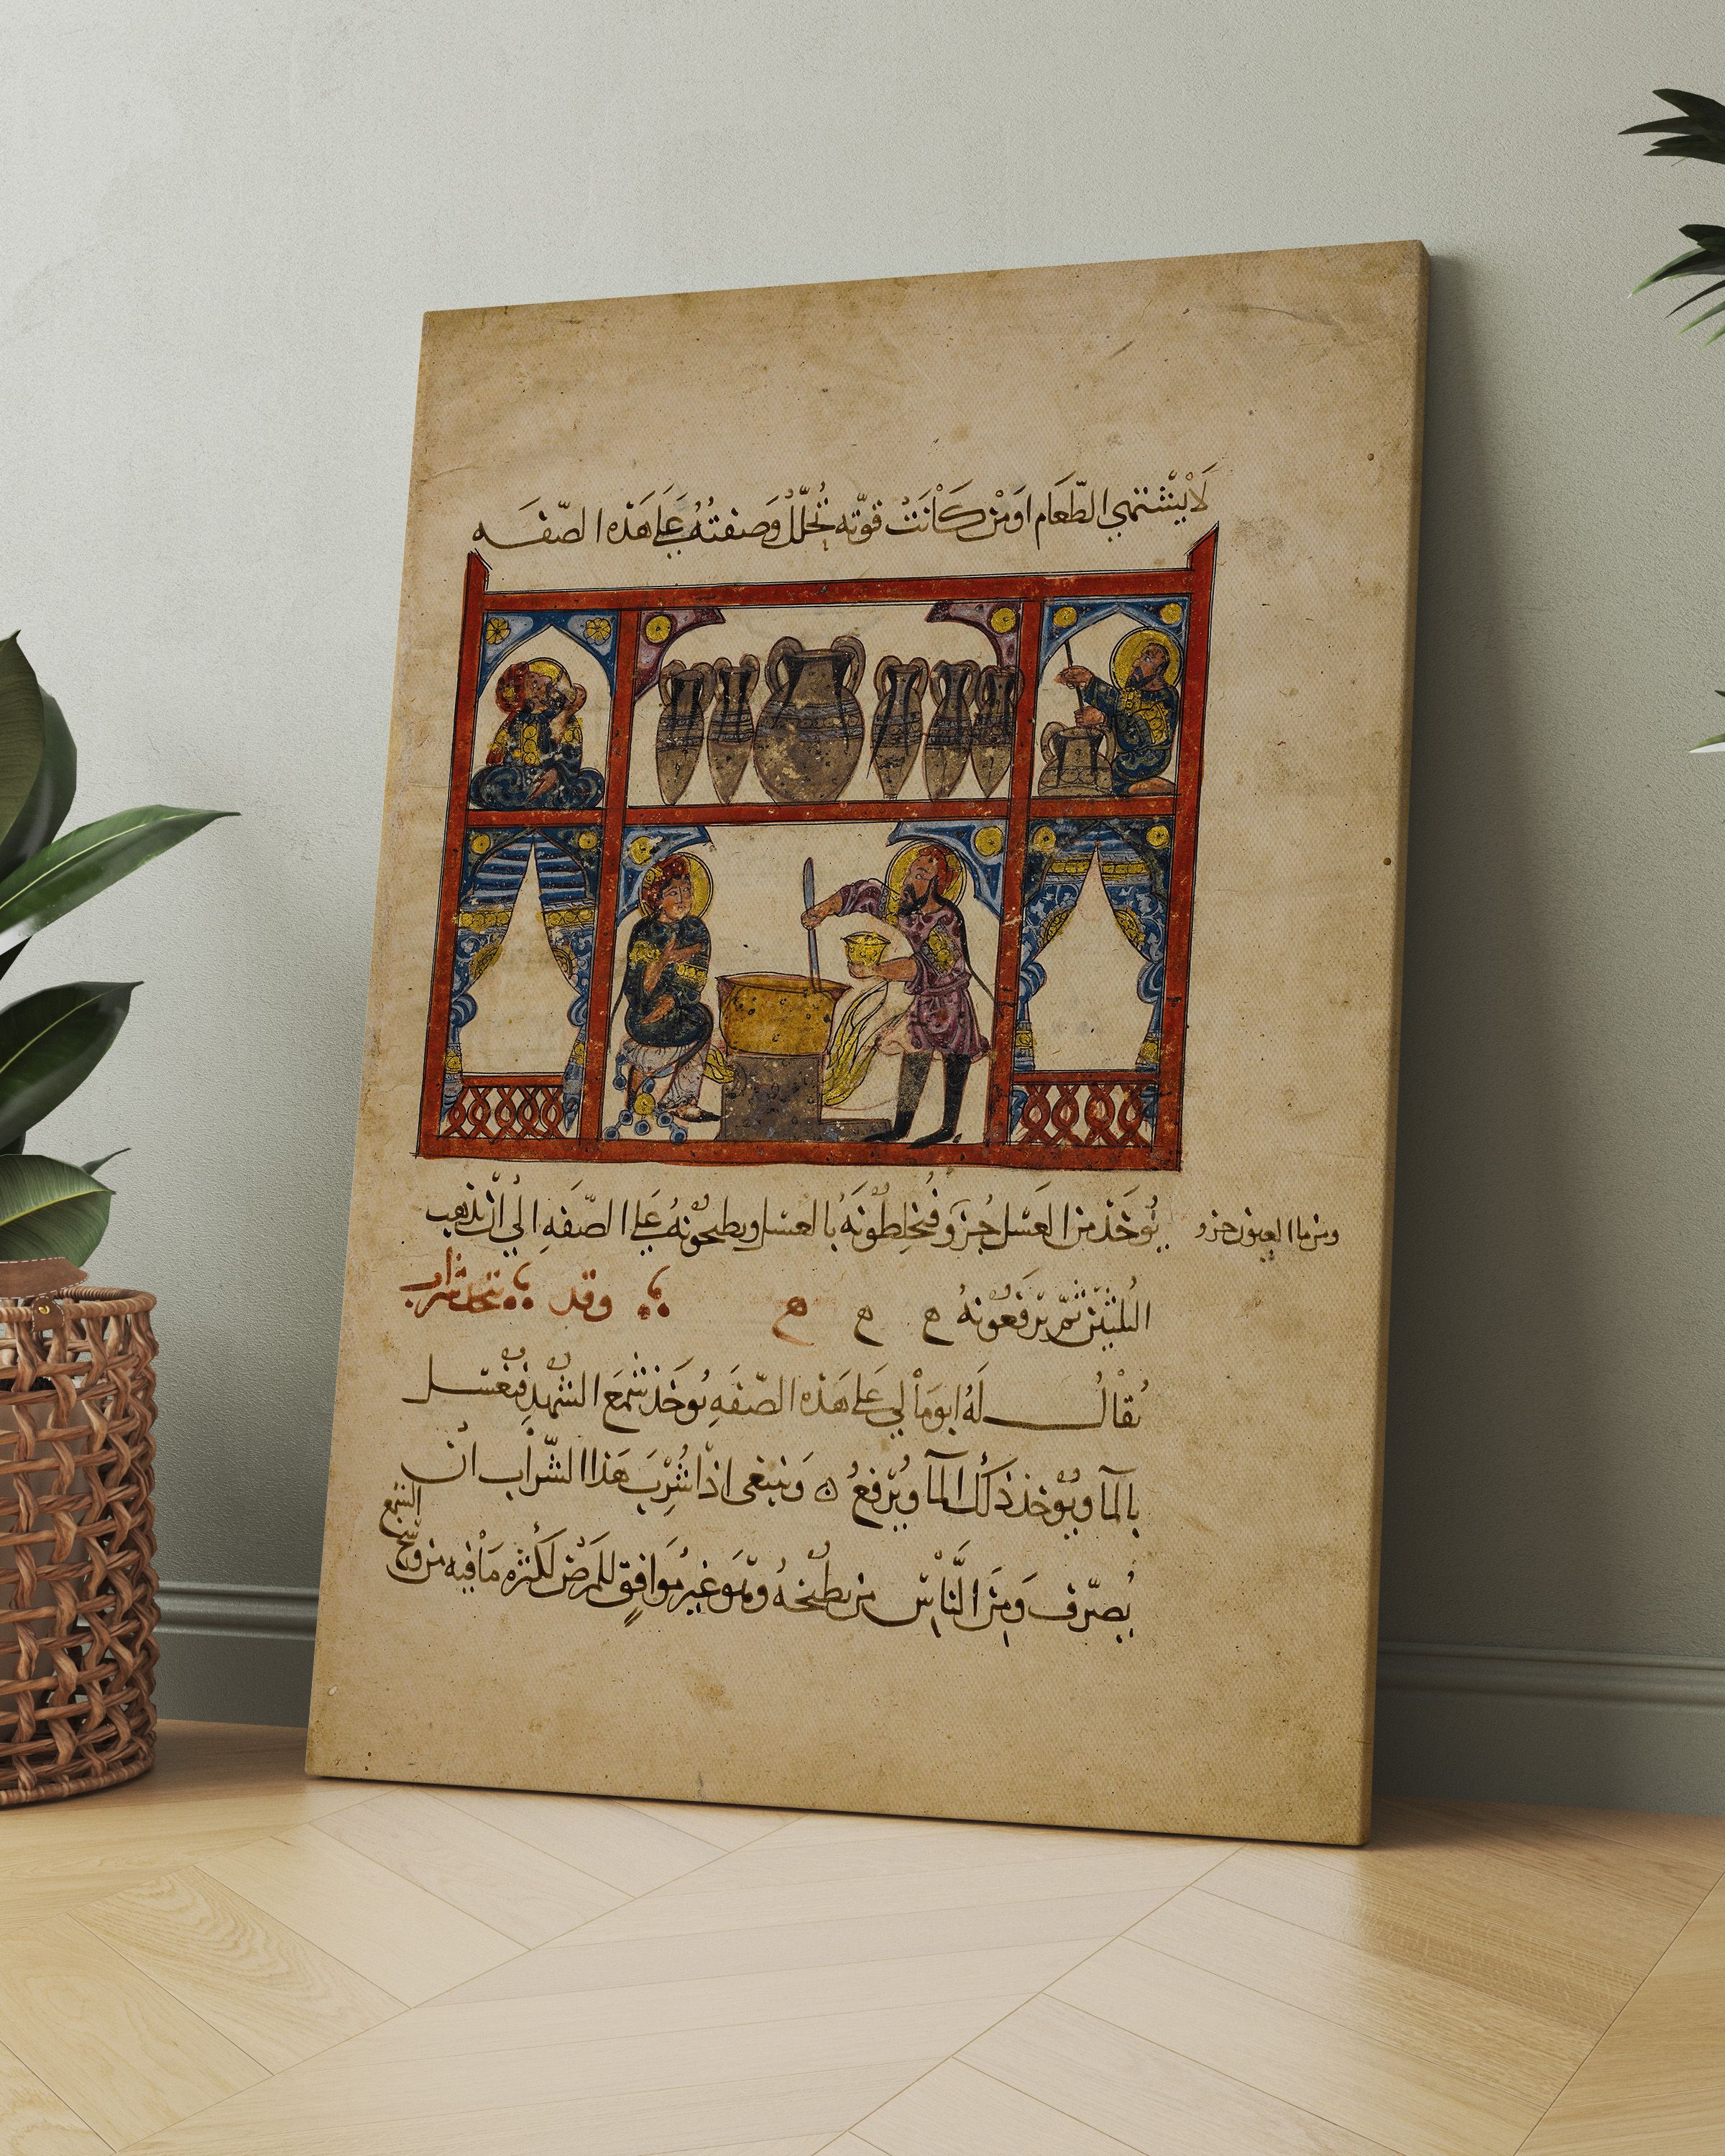 لَا يَشْتَهِي الطَّعَام اوَمَنْ كَانَتْ قوّته تُحَلّل وَصنفتُهُ عَلَى هَذه الصّفَه
يُوخَذ من العَسَل جُزو فُيَخلِطُونَهُ بالعسَل ويطبخُونهُ عَلى الصّفَهِ الي أنْ يذهب
ومن ما العيون جزو
الثلثين ثمّ يَرْفَعُونهُ ه ه ه وقد يتخذ شراب
يُقالُ لَهُ ابوُمَالي عَلى هَذه الصّفَهِ يُوخَذ شَمَع الشهدِ فيغسَل
بالمآ ويُوخذ ذَلك المآ ويُرْفعُ ه وَينبغي اذَا شُرِبَ هَذا الشّرَاب انْ
يُصرّف وَمنَ النَّاسْ من يطبخهُ وهُوَ غيرُ مُوَافقٍ للمَرْضَى لكثرهِ مَا فيه من وسَخ
الشمع